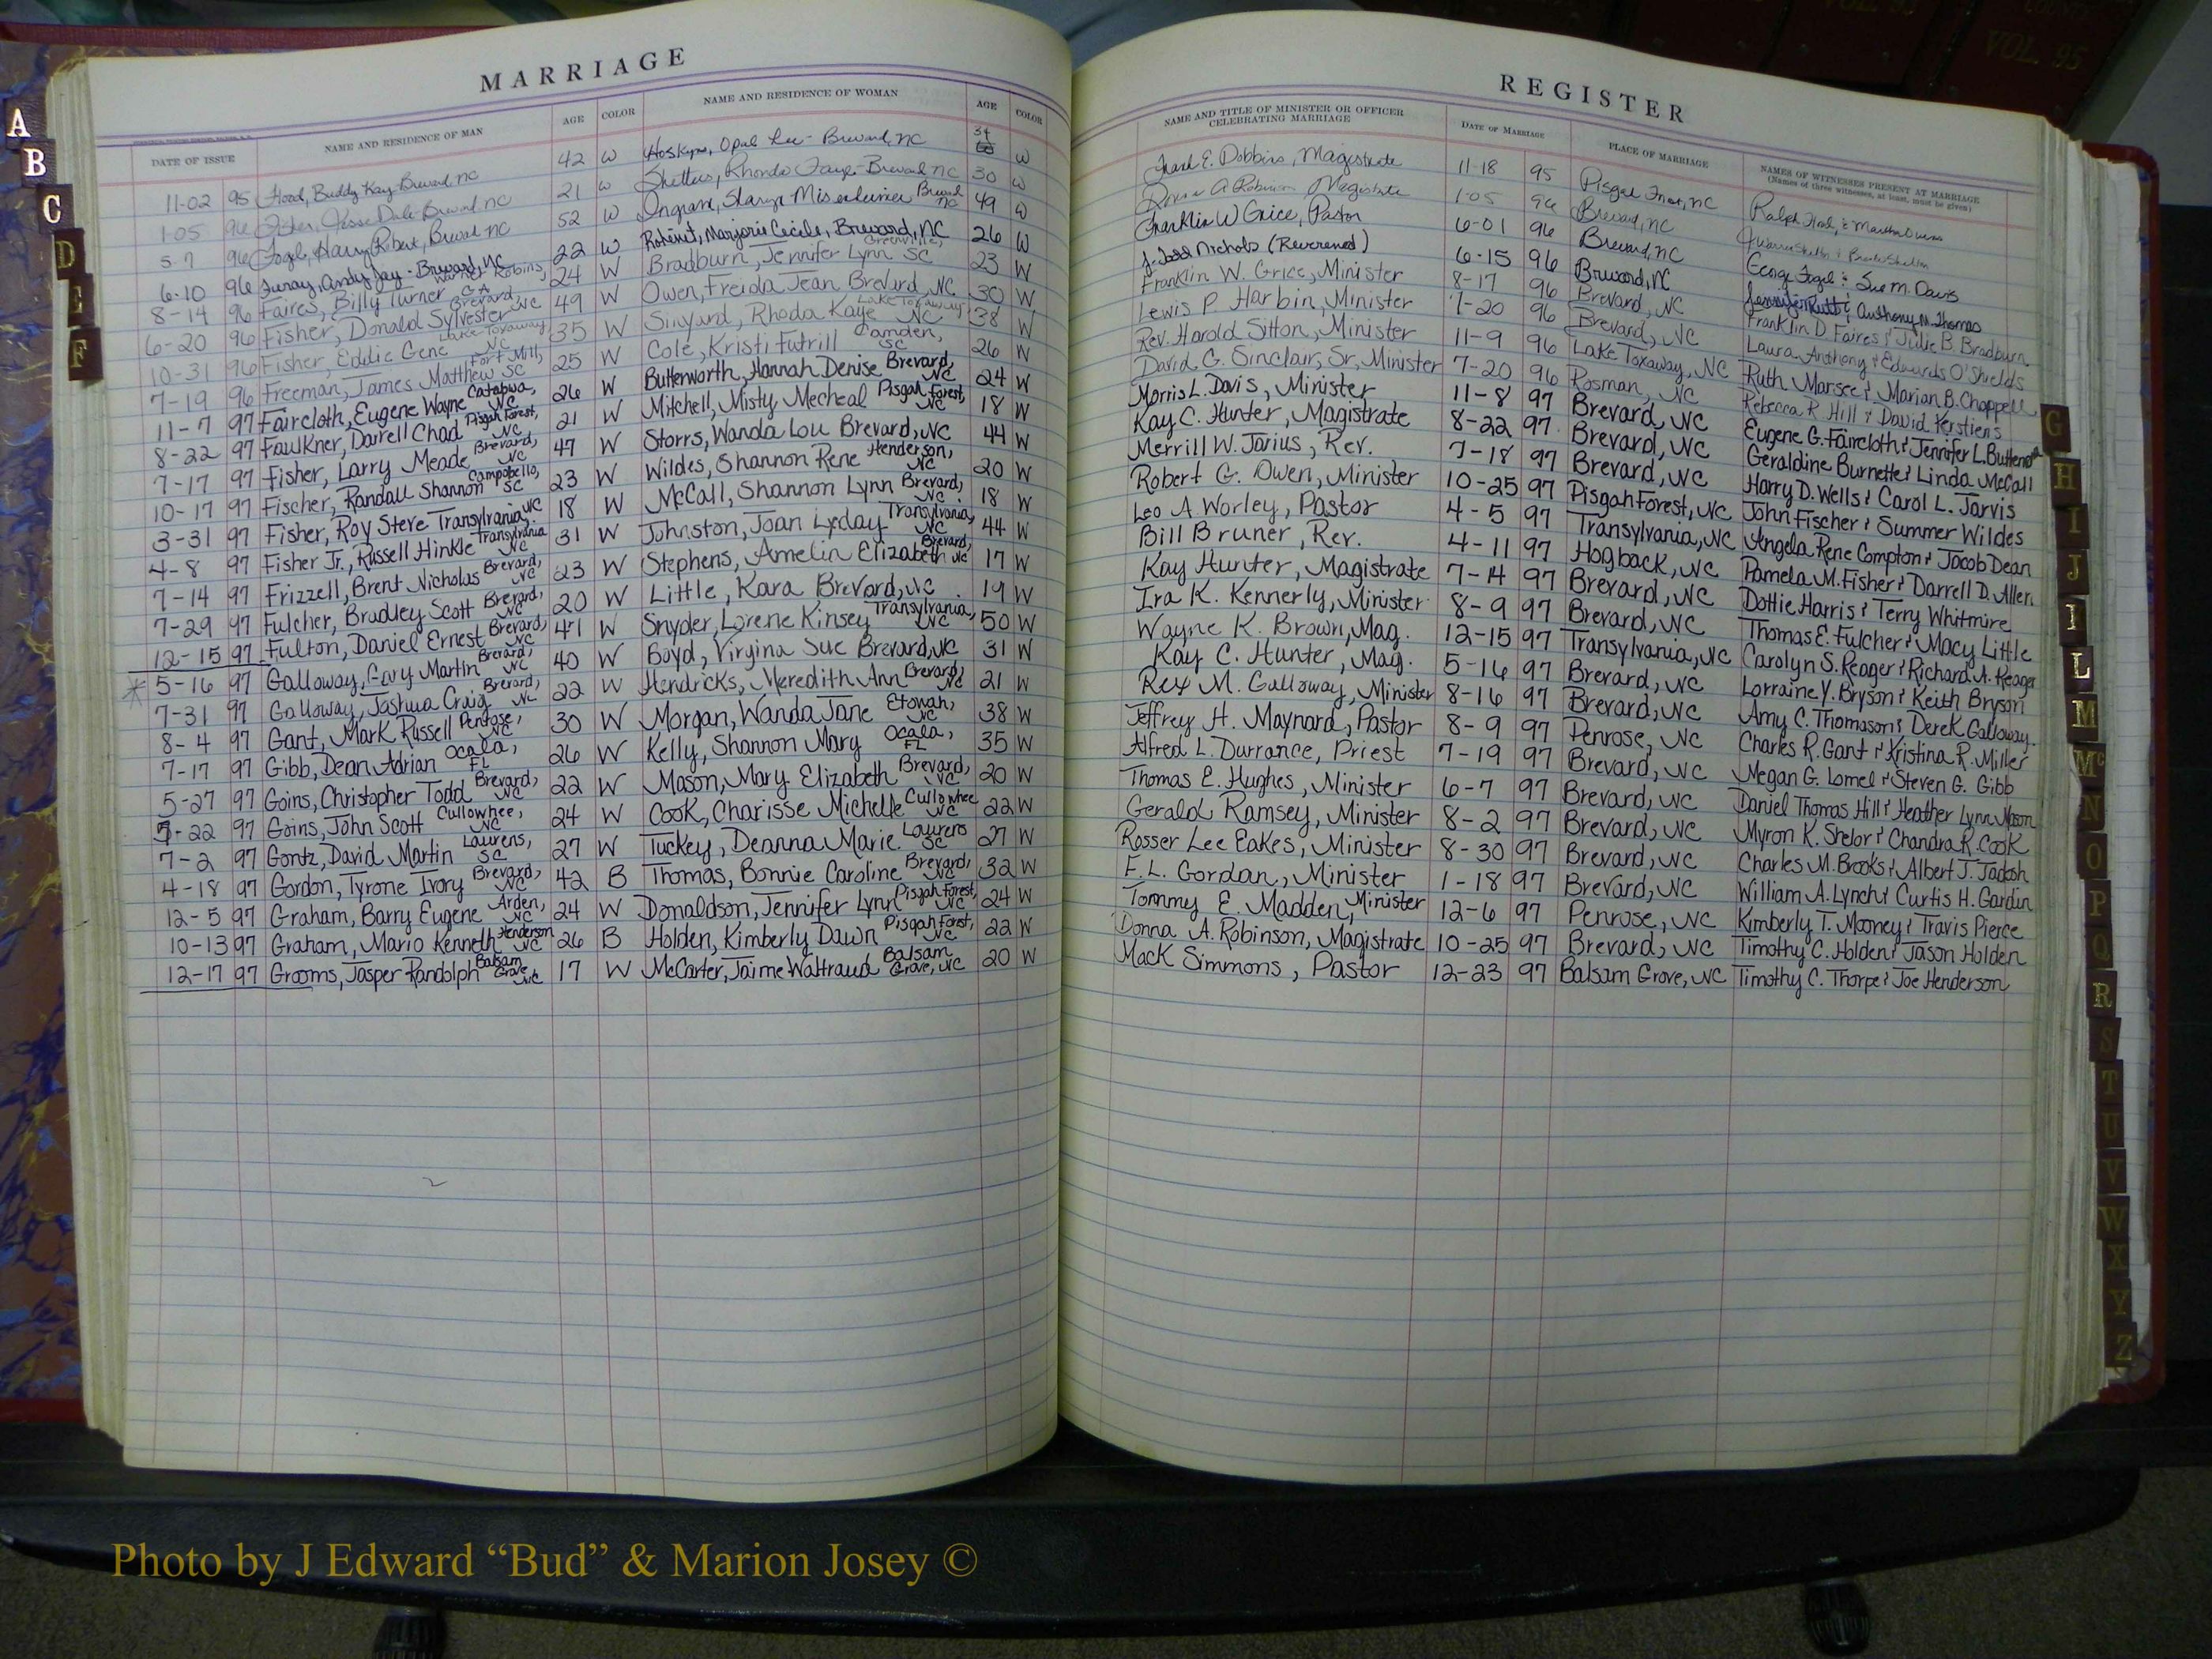 MARRIAGE
DATE OF ISSUE NAME AND RESIDENCE OF MAN AGE COLOR NAME AND RESIDENCE OF WOMAN AGE COLOR
11-02 95 Buddy Kay - Brevard, NC 42 W Opal Lee - Brevard, NC 34 W
1-05 96 Jesse Dale - Brevard NC 21 W Rhonda Faye - Brevard NC 30 W
5-7 96 Fogel, Harry Robert, Brevard NC 52 W Ingram, Brevard NC 49 W
6-10 96 Andy Jay - Brevard, NC 22 W Marjorie Cecile, Brevard, NC 26 W
8-14 96 Faires, Billy Turner Warner Robins, GA 24 W Bradburn, Jennifer Lynn Greenville, SC 23 W
6-20 96 Fisher, Donald Sylvester Brevard, NC 49 W Owen, Freida Jean Brevard, NC 30 W
10-31 96 Fisher, Eddie Gene Lake Toxaway, NC 35 W Sinyard, Rhoda Kaye Lake Toxaway NC 38 W
7-19 96 Freeman, James Matthew Fort Mill, SC 25 W Cole, Kristi Futrill Camden, SC 26 W
11-7 97 Faircloth, Eugene Wayne Catabwa, NC 26 W Butterworth, Hannah Denise Brevard, NC 24 W
8-22 97 Faulkner, Darrell Chad Pisgah Forest, NC 21 W Mitchell, Misty Mecheal Pisgah Forest, NC 18 W
7-17 97 Fisher, Larry Meade Brevard, NC 47 W Storrs, Wanda Lou Brevard, NC 44 W
10-17 97 Fischer, Randall Shannon Campobello, SC 23 W Wildes, Shannon Rene Henderson, NC 20 W
3-31 97 Fisher, Roy Steve Transylvania, NC 18 W McCall, Shannon Lynn Brevard, NC 18 W
4-8 97 Fisher Jr., Russell Hinkle Transylvania NC 31 W Johnston, Joan Lyday Transylvania, NC 44 W
7-14 97 Frizzell, Brent Nicholas Brevard, NC 23 W Stephens, Amelia Elizabeth Brevard, NC 17 W
7-29 97 Fulcher, Bradley Scott Brevard, NC 20 W Little, Kara Brevard, NC 19 W
12-15 97 Fulton, Daniel Ernest Brevard, NC 41 W Snyder, Lorene Kinsey Transylvania, NC 50 W
5-16 97 Galloway, Gary Martin Brevard, NC 40 W Boyd, Virgina Sue Brevard, NC 31 W
7-31 97 Galloway, Joshua Craig Brevard, NC 22 W Hendricks, Meredith Ann Brevard, NC 21 W
8-4 97 Gant, Mark Russell Penrose, NC 30 W Morgan, Wanda Jane Etowah, NC 38 W
7-17 97 Gibb, Dean Adrian Ocala, FL 26 W Kelly, Shannon Mary Ocala, FL 35 W
5-27 97 Goins, Christopher Todd Brevard, NC 22 W Mason, Mary Elizabeth Brevard, NC 20 W
22 97 Goins, John Scott Cullowhee, NC 24 W Cook, Charisse Michelle Cullowhee NC 22 W
7-2 97 Gontz, David Martin Laurens, SC 27 W Tuckey, Deanna Marie Laurens SC 27 W
4-18 97 Gordon, Tyrone Ivory Brevard, NC 42 B Thomas, Bonnie Caroline Brevard, NC 32 W
12-5 97 Graham, Barry Eugene Arden, NC 24 W Donaldson, Jennifer Lynn Pisgah Forest, NC 24 W
10-13 97 Graham, Mario Kenneth Henderson NC 26 B Holden, Kimberly Dawn Pisgah Forest, NC 22 W
12-17 97 Grooms, Jasper Randolph Balsam Grove, NC 17 W McCarter, Jaime Waltraud Balsam Grove, NC 20 W
REGISTER
NAME AND TITLE OF MINISTER OR OFFICER CELEBRATING MARRIAGE DATE OF MARRIAGE PLACE OF MARRIAGE NAMES OF WITNESSES PRESENT AT MARRIAGE
(Names of three witnesses, at least, must be given)
E. Dobbins, Magistrate 11-18 95 Pisgah Forest, NC Ralph & Martha Owens
Donna A Robinson Magistrate 1-05 96 Brevard, NC
Franklin W Grice, Pastor 6-01 96 Brevard, NC George Fogel & Sue M. Davis
J. Todd Nichols (Reverened) 6-15 96 Brevard, NC & Anthony M. Thomas
Franklin W. Grice, Minister 8-17 96 Brevard, NC Franklin D Faires & Julie B. Bradburn
Lewis P Harbin, Minister 7-20 96 Brevard, NC Laura Anthony & Edwards O'Shields
Rev. Harold Sitton, Minister 11-9 96 Lake Toxaway, NC Ruth Marsee & Marian B. Chappell
David G. Sinclair, Sr, Minister 7-20 96 Rosman, NC Rebecca R Hill & David Kerstiens
Morris L. Davis, Minister 11-8 97 Brevard, NC Eugene G. Faircloth & Jennifer L.
Kay C. Hunter, Magistrate 8-22 97 Brevard, NC Geraldine Burnette & Linda McCall
Merrill W. Jarius, Rev. 7-18 97 Brevard, NC Harry D. Wells & Carol L. Jarvis
Robert G. Owen, Minister 10-25 97 Pisgah Forest, NC John Fischer & Summer Wildes
Leo A Worley, Pastor 4-5 97 Transylvania, NC Angela Rene Compton & Jacob Dean
Bill Bruner, Rev. 4-11 97 Hogback, NC Pamela M. Fisher & Darrell D. Allen
Kay Hunter, Magistrate 7-14 97 Brevard, NC Dottie Harris & Terry Whitmire
Ira K. Kennerly, Minister 8-9 97 Brevard, NC Thomas E. Fulcher & Macy Little
Wayne K. Brown, Mag. 12-15 97 Transylvania, NC Carolyn S. Reager & Richard A. Reager
Kay C. Hunter, Mag. 5-16 97 Brevard, NC Lorraine Y. Bryson & Keith Bryson
Rex M. Galloway, Minister 8-16 97 Brevard, NC Amy C. Thomason & Derek Galloway
Jeffrey H. Maynard, Pastor 8-9 97 Penrose, NC Charles R. Gant & Kristina R. Miller
Alfred L. Durrance, Priest 7-19 97 Brevard, NC Megan G. Lomel & Steven G. Gibb
Thomas E. Hughes, Minister 6-7 97 Brevard, NC Daniel Thomas Hill & Heather Lynn Mason
Gerald Ramsey, Minister 8-2 97 Brevard, NC Myron K. Shelor & Chandra R. Cook
Rosser Lee Eakes, Minister 8-30 97 Brevard, NC Charles M. Brooks & Albert J. Jadosh
F. L. Gordan, Minister 1-18 97 Brevard, NC William A. Lynch & Curtis H. Gardin
Tommy E. Madden, Minister 12-6 97 Penrose, NC Kimberly T. Mooney & Travis Pierce
Donna A. Robinson, Magistrate 10-25 97 Brevard, NC Timothy C. Holden & Jason Holden
Mack Simmons, Pastor 12-23 97 Balsam Grove, NC Timothy C. Thorpe & Joe Henderson
A
B
C
D
E
F
G
H
I
J
L
M
Mc
N
O
P
Q
R
S
T
U
V
W
X
Y
Z
VOL. 95
Photo by J Edward “Bud” & Marion Josey ©